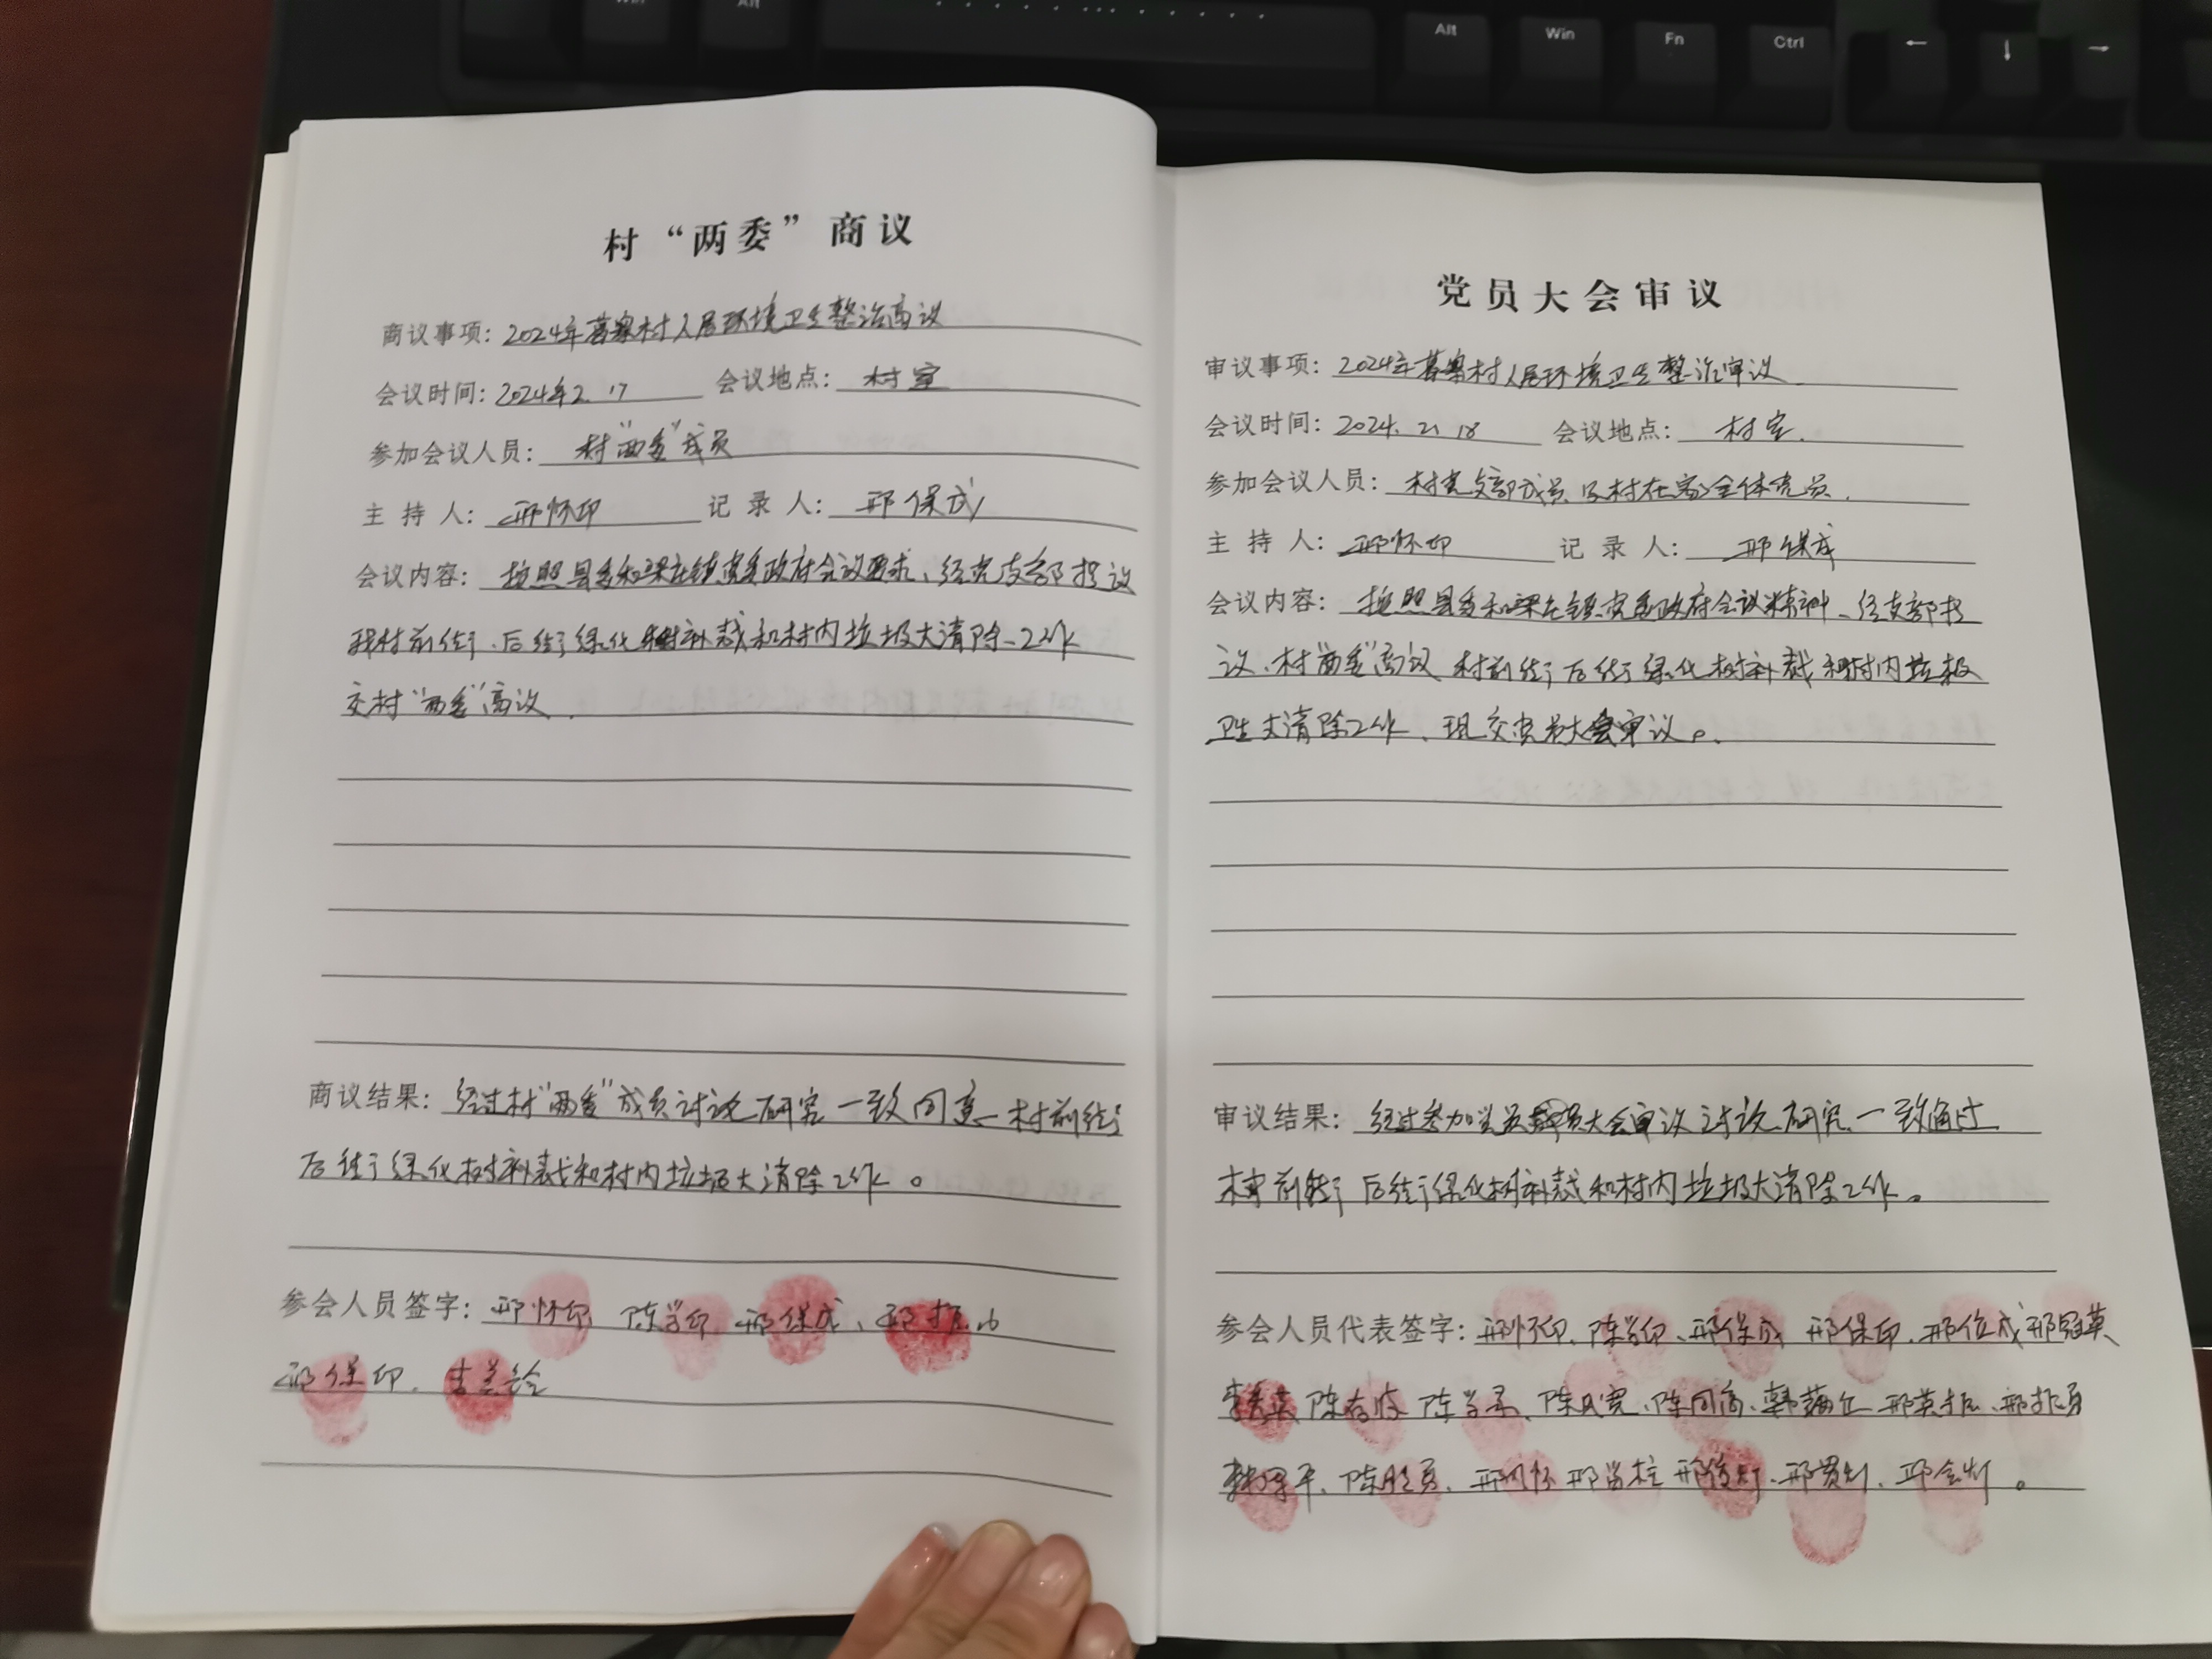 Win
Alt
Alt
Win
Fn
Ctrl
←
↓
→
村“两委”商议
商议事项：2024年 村人居环境卫生整治商议
会议时间：2024年2.17 会议地点：村室
参加会议人员：村“两委”成员
主持人：邢怀印 记录人：邢保成
会议内容：按照县委和梁庄镇党委政府会议要求、经党支部提议
我村前街、后街绿化树补栽和村内垃圾大清除工作
交村“两委”商议.
商议结果：经过村“两委”成员讨论研究一致同意村前街
后街绿化树补栽和村内垃圾大清除工作。
参会人员签字：邢怀印 陈学印 邢保成、邢振
邢保印.
党员大会审议
审议事项：2024年 村人居环境卫生整治审议
会议时间：2024.2.18 会议地点：村室.
参加会议人员：村党支部成员及村在家全体党员.
主持人：邢怀印 记录人：邢保成
会议内容：按照县委和梁庄镇党委政府会议精神、经支部提
议、村“两委”商议 村前街后街绿化树补栽和村内垃圾
卫生大清除工作、现交党员大会审议。
审议结果：经过参加党员 大会审议讨论研究一致通过
村前街后街绿化树补栽和村内垃圾大清除工作。
参会人员代表签字：邢怀印、陈学印、邢保成 邢保印、邢位成
陈 陈学 陈 陈同 韩 邢英振、邢振
陈 邢 邢 邢 邢 邢金灯。